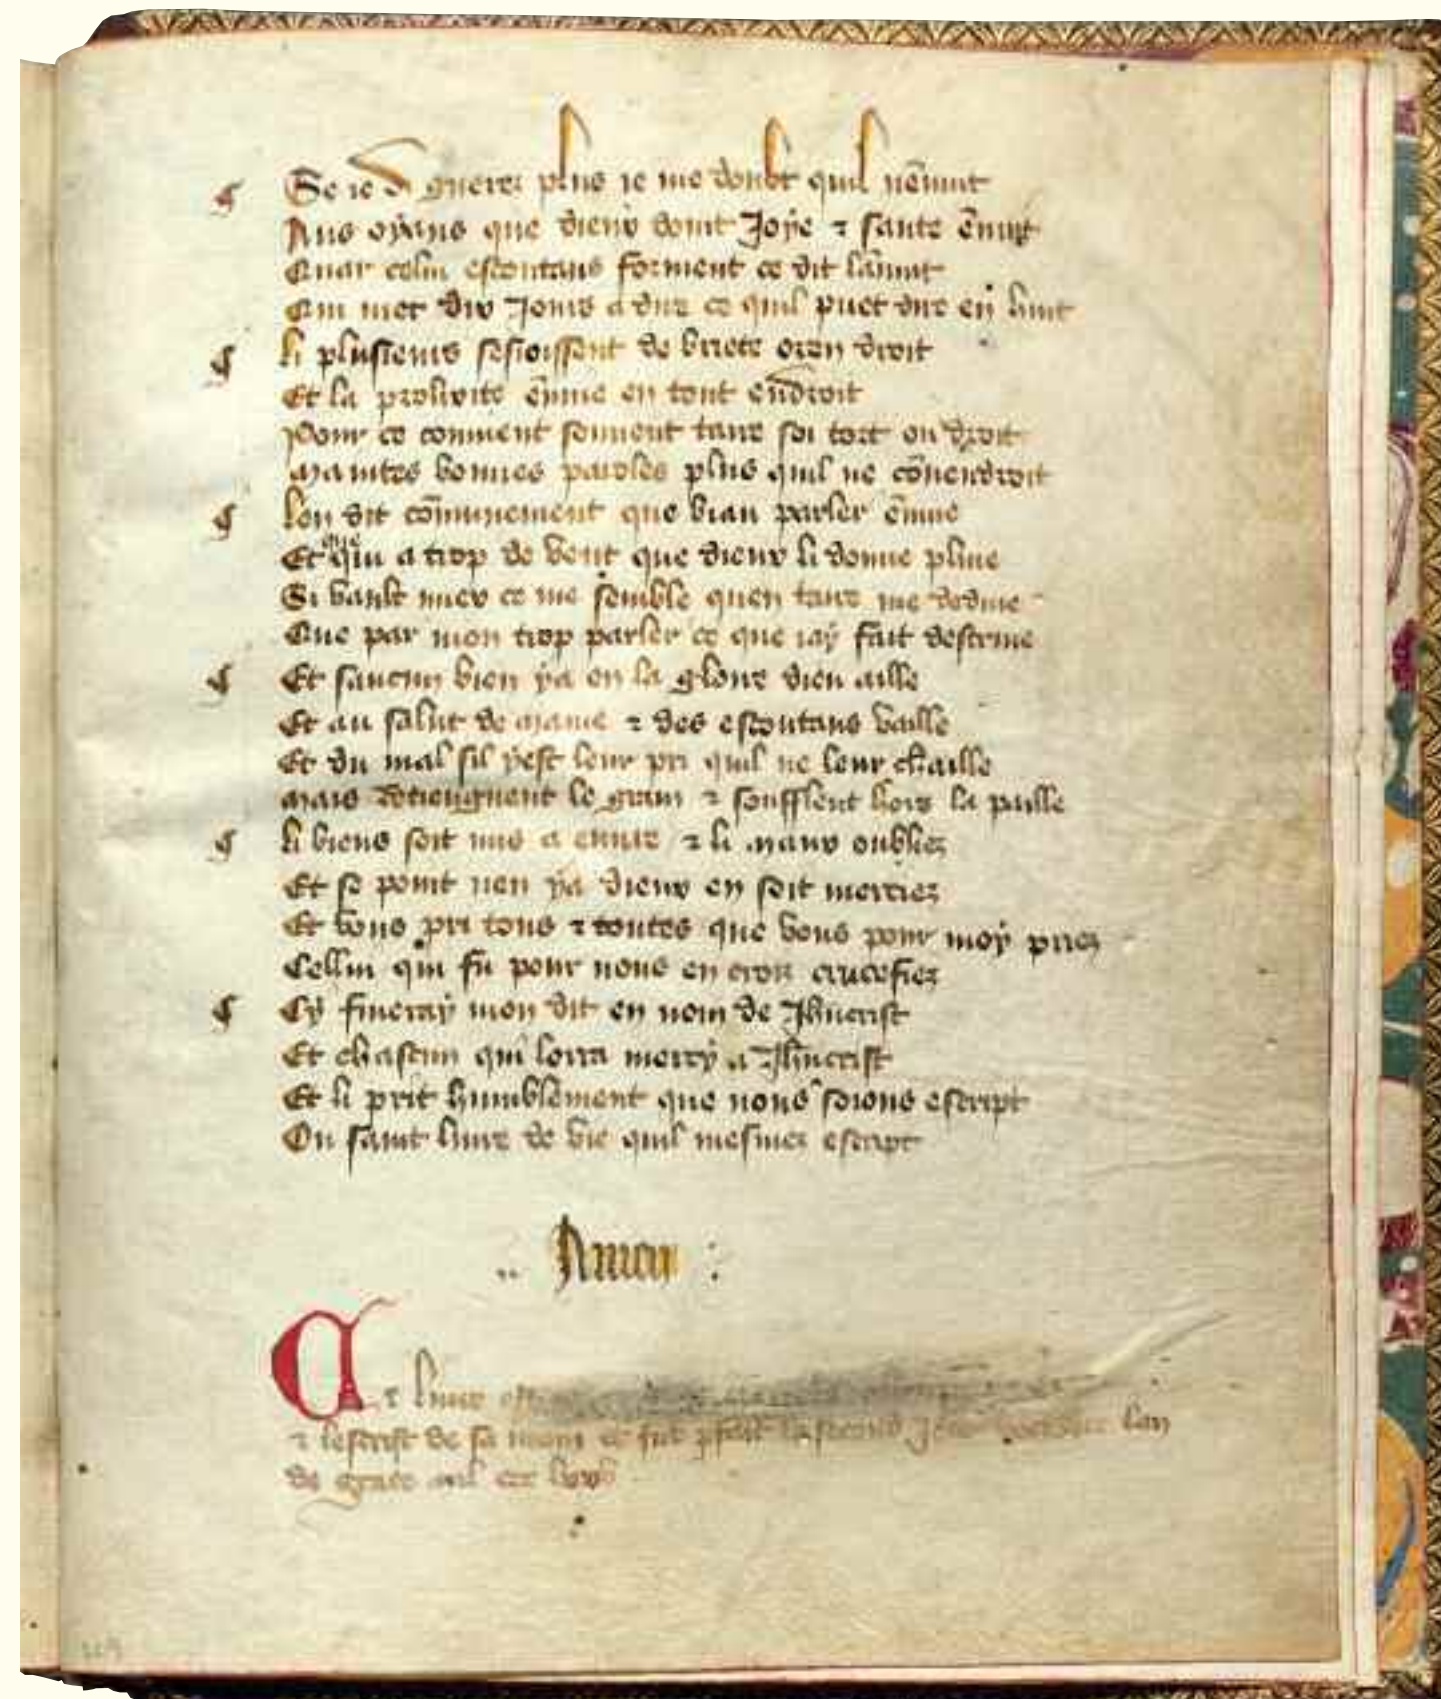 Se ie d guerez plus ie me doubt quil nẽnuit
Aus oyans que dieux doint Joye ⁊ sante ẽnuit
Quar celui escoutans forment ce dit lãnuit
Qui met dix Jours a dire ce quil puet dire en huit
li plusieurs sesioissent de briete orendroit
Et la prolixite ẽnuie en tout ẽndroit
Pour ce conuient souuent taire soi tort ou droit
Maintes bonnes paroles plus quil ne cõuendroit
Len dit cõmunement que biau parler ẽnuie
Et que qui a trop de vent que dieux li donne pluie
Si vault miex ce me semble quen taire me deduie
Que par mon trop parler ce que iay fait destruie
Et saucun bien ya en la gloire dieu aille
Et au salut de marie ⁊ des escoutans vaille
Et du mal sil yest leur pri quil ne leur chaille
Mais detieugnent le grain ⁊ soufflent hors la paille
li biens soit mis a euure ⁊ li maux oubliez
Et se point nen ya dieux en soit merciez
Et vous pri tous ⁊ toutes que vous pour moy priez
Cellui qui fu pour nous en croix crucefiez
Cy fineray mon dit en nom de Jhucrist
Et chascun qui lorra mercy a Jhucrist
Et li prit humblement que nous soions escript
Ou saint liure de vie quil mesmes escript
Amen
Cet liure
⁊ lescrist de sa main et fut pfait le second Jour lan
de grace mil ccc